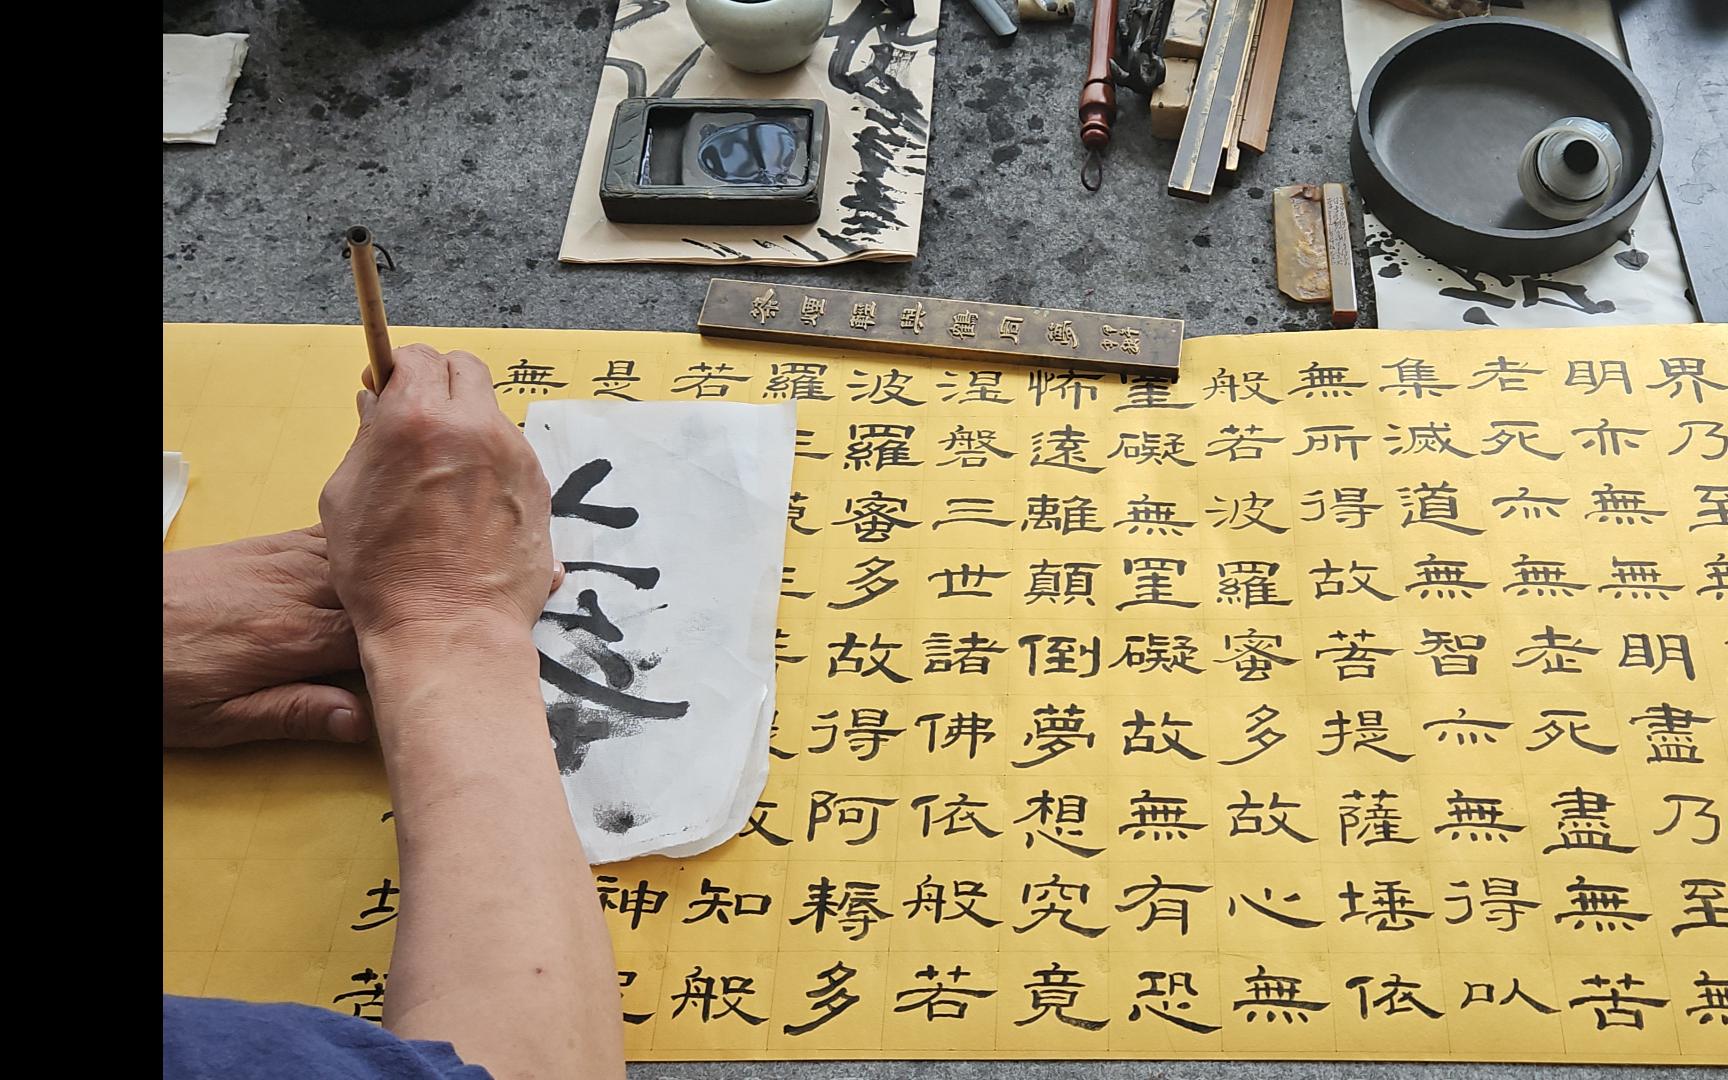 茶煙輕與鶴同夢
界乃至無
明亦無無明盡乃至無
老死亦無老死盡無苦
集滅道無智亦無得以
無所得故菩提薩埵依
般若波羅蜜多故心無
罣礙無罣礙故無有恐
怖遠離顛倒夢想究竟
涅磐三世諸佛依般若
波羅蜜多故得阿耨多
羅三三故知般
若神
是
無切苦